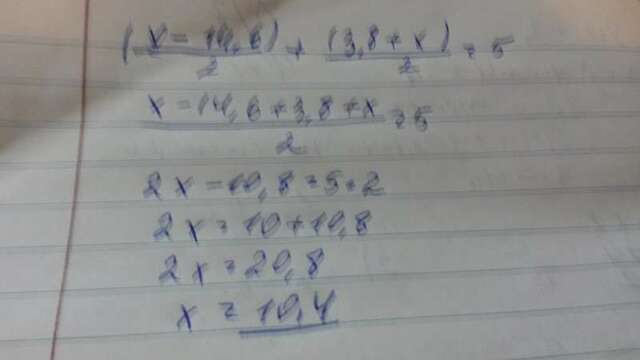 (x - 14,6)/2 + (3,8 + x)/2 = 5
x - 14,6 + 3,8 + x/2 = 5
2x - 10,8 = 5 · 2
2x = 10 + 10,8
2x = 20,8
x = 10,4